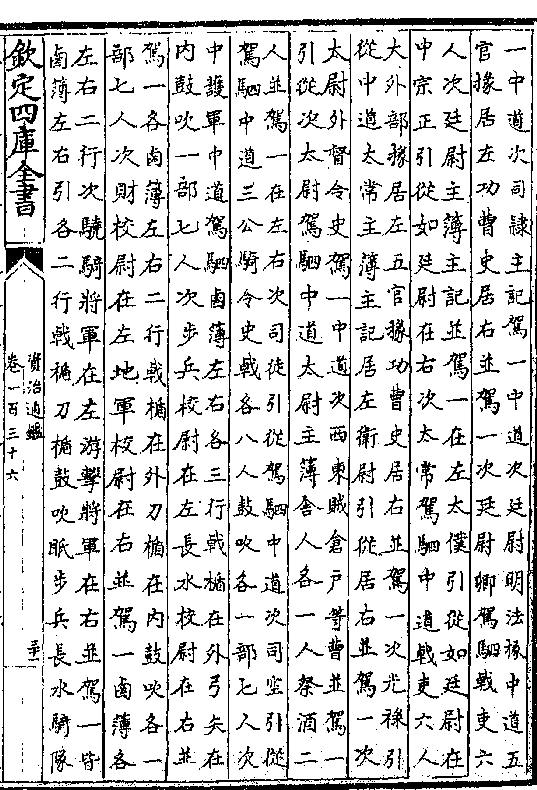 一中道次司隸主記駕一中道次廷尉明法掾中道五
官掾居左功曹史居右並駕一次廷尉卿駕駟戟吏六
人次廷尉主簿主記並駕一在左太僕引從如廷尉在
中宗正引從如廷尉在右次太常駕駟中道戟吏六人
大外部掾居左五官掾功曹史居右並駕一次光祿引
從中道太常主簿主記居左衛尉引從居右並駕一次
太尉外督令史駕一中道次西東賊倉戶等曹並駕一
引從次太尉駕駟中道太尉主簿舍人各一人祭酒二
人並駕一在左右次司徒引從駕駟中道次司空引從
駕駟中道三公騎令史戟各八人鼓吹各一部七人次
中護軍中道駕駟鹵簿左右各三行戟楯在外弓矢在
內鼓吹一部七人次步兵校尉在左長水校尉在右並
駕一各鹵簿左右二行戟楯在外刀楯在內鼓吹各一
部七人次財校尉在左地軍校尉在右並駕一鹵簿各
左右二行次驍騎將軍在左游擊將軍在右並駕一皆
鹵簿左右引各二行戟楯刀楯鼓吹眂步兵長水騎隊
欽定四庫全書
資治通鑑
卷一百三十六